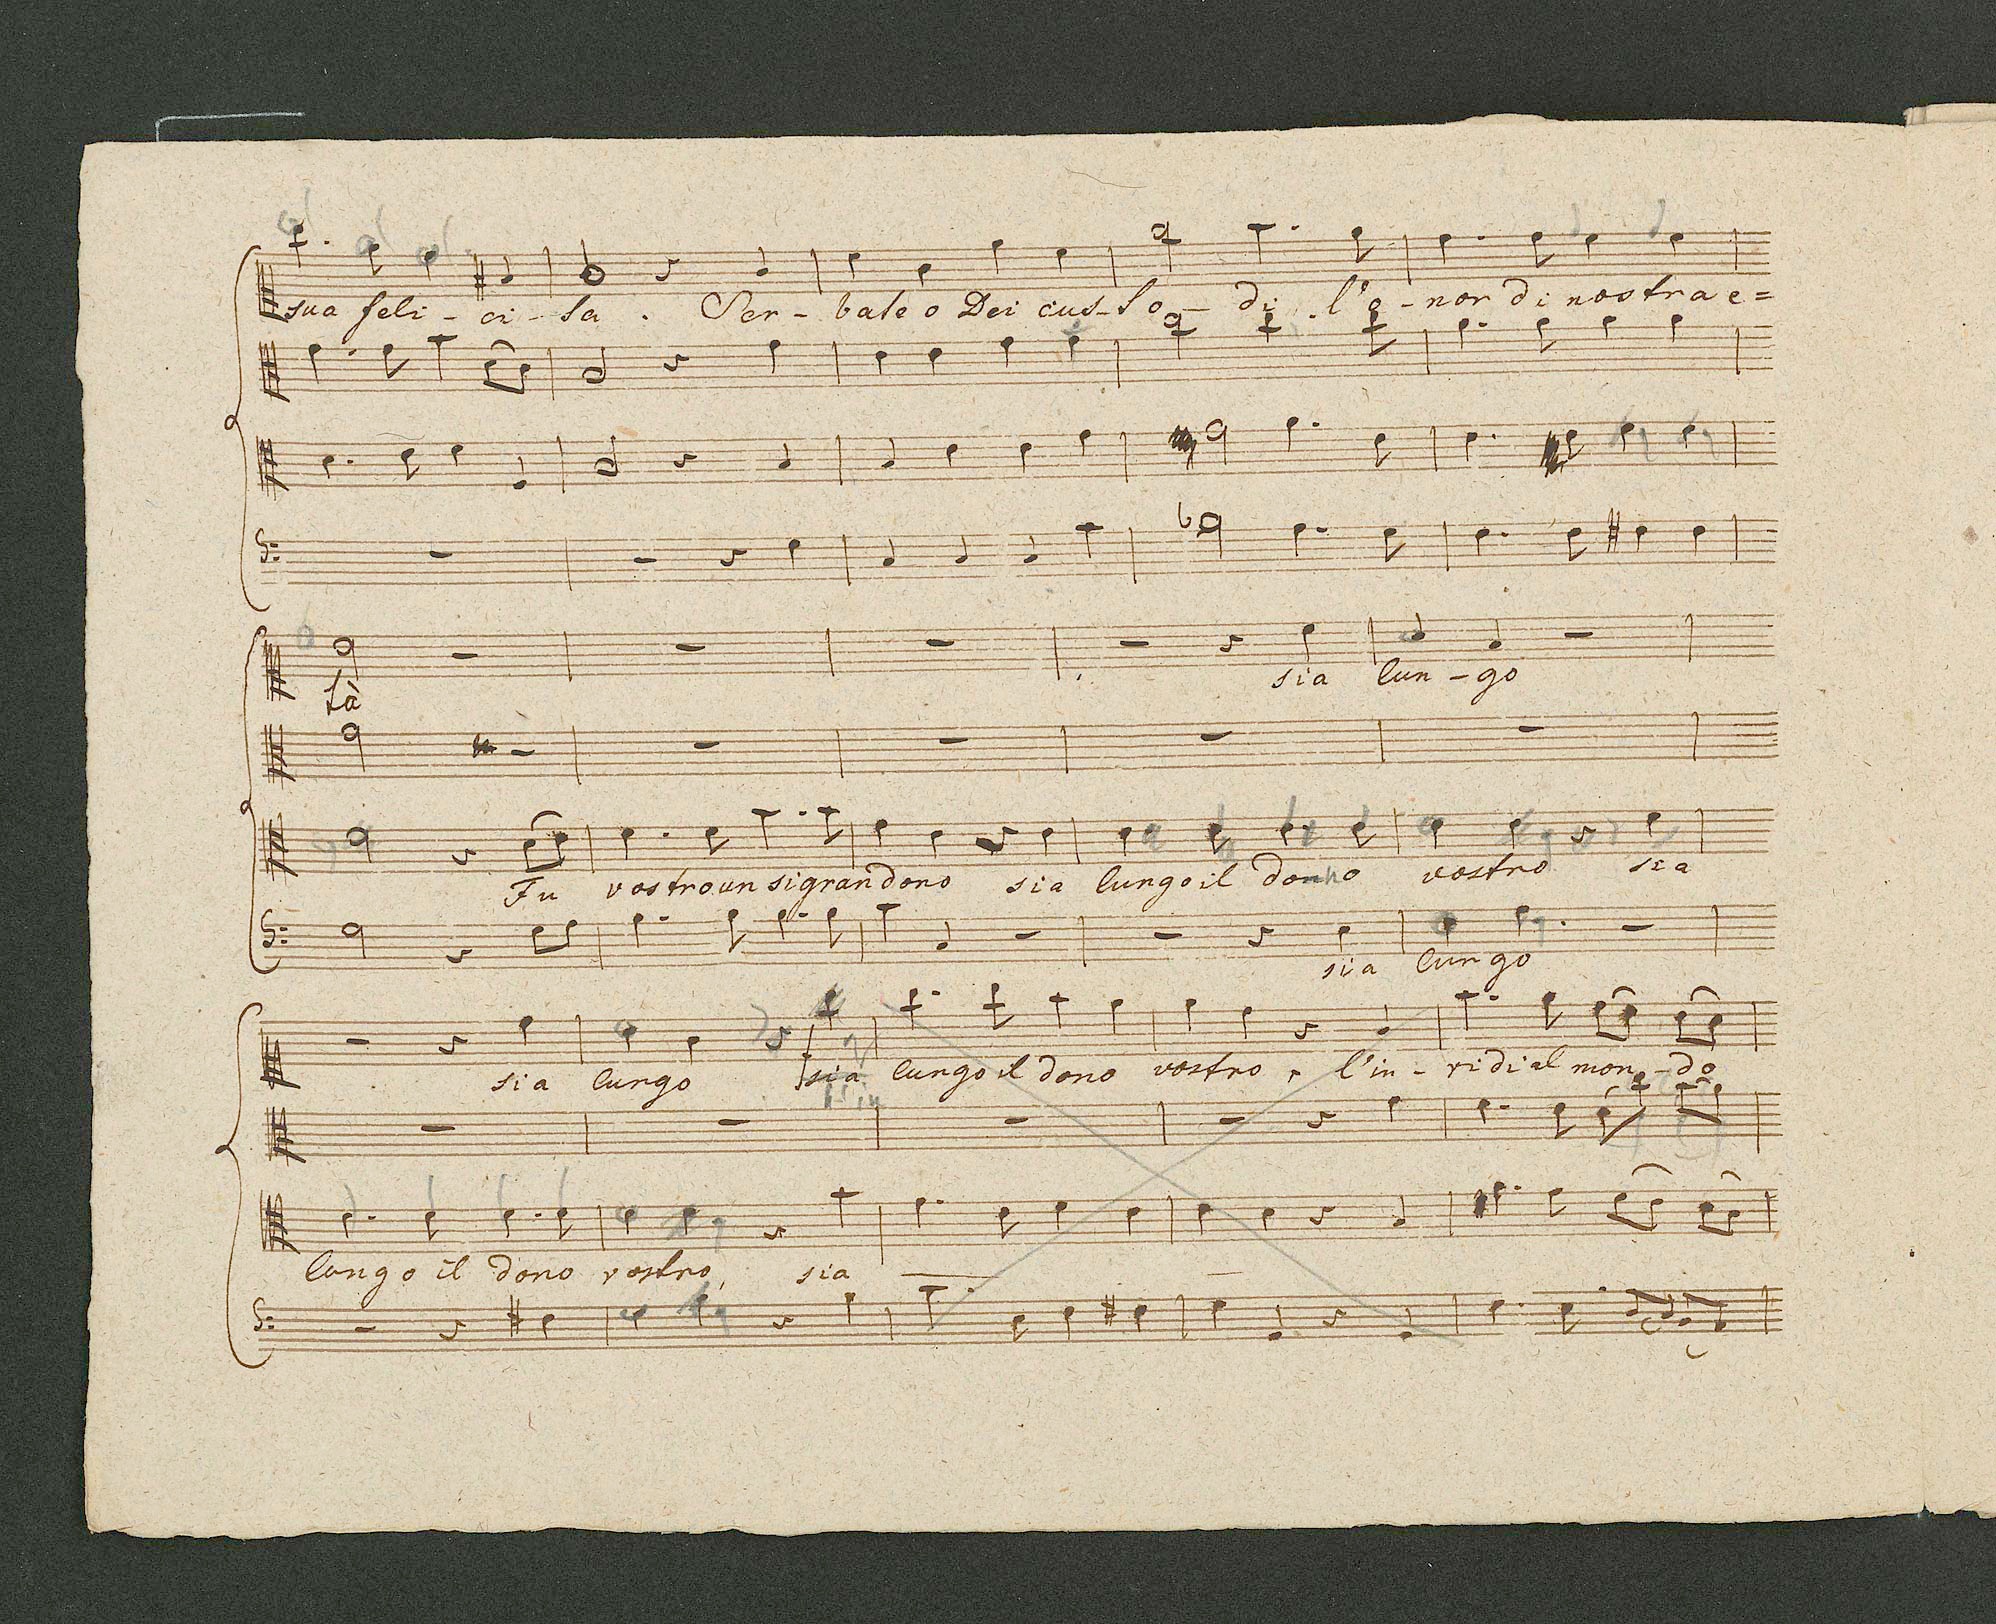 sua feli - ci - ta . Ser - bate o Dei cus - to - di . l'o - nor di nostra e =
tà
sia lun - go
Fu vostro un si gran dono sia lungo il dono vostro sia
sia lungo
sia lungo sia lungo il dono vostro, l'in - vidi al mon - do
lungo il dono vostro, sia